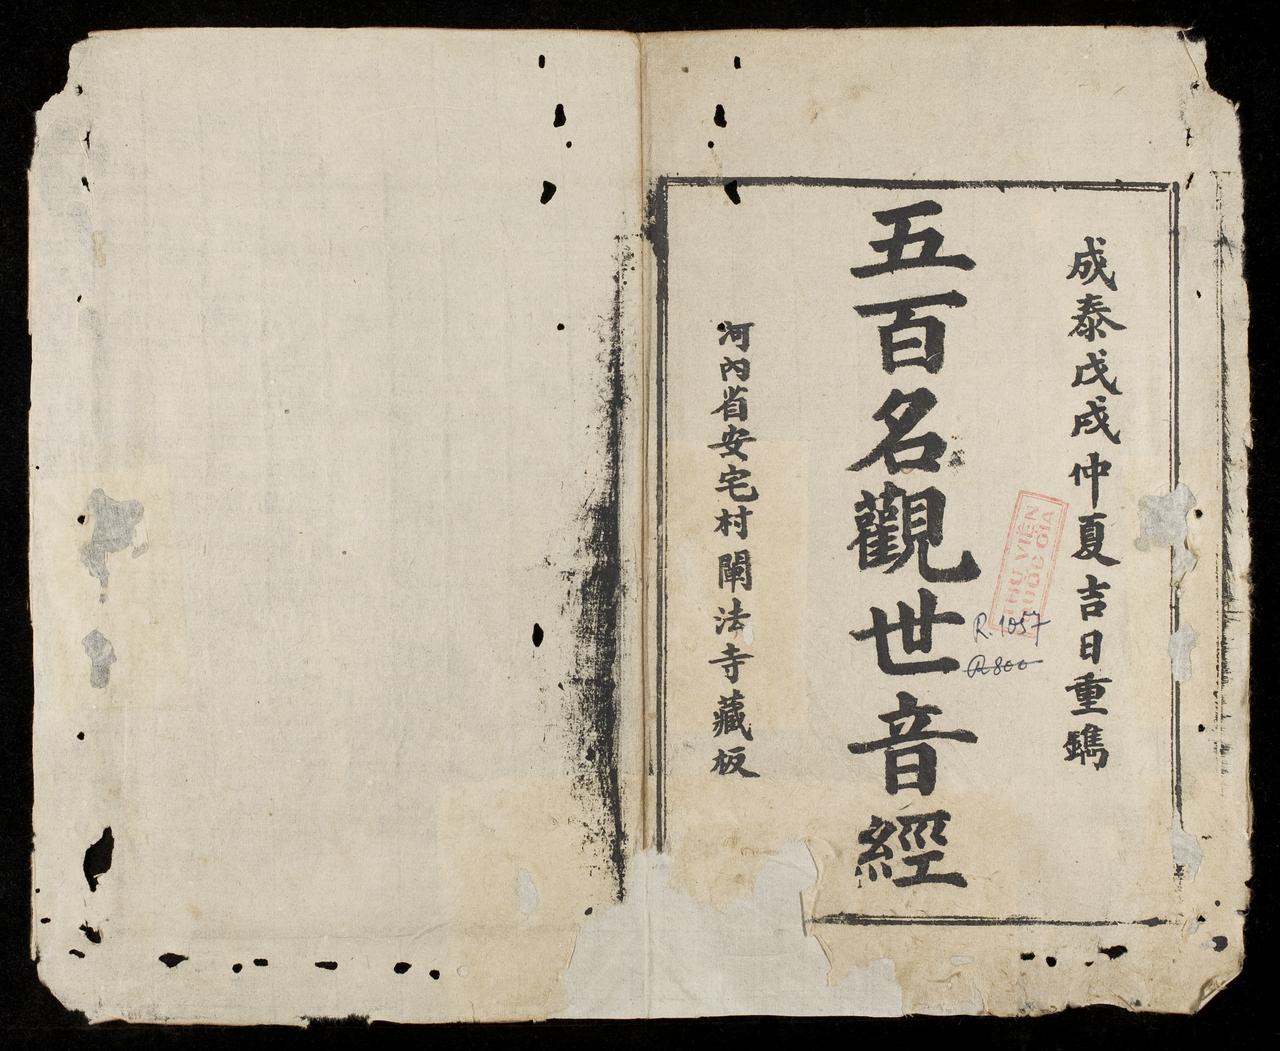 成泰戊戌仲夏吉日重鐫
五百名觀世音經
河內省安宅村闡法寺藏板
THƯ VIỆN
QUỐC GIA
R. 1057
R 800